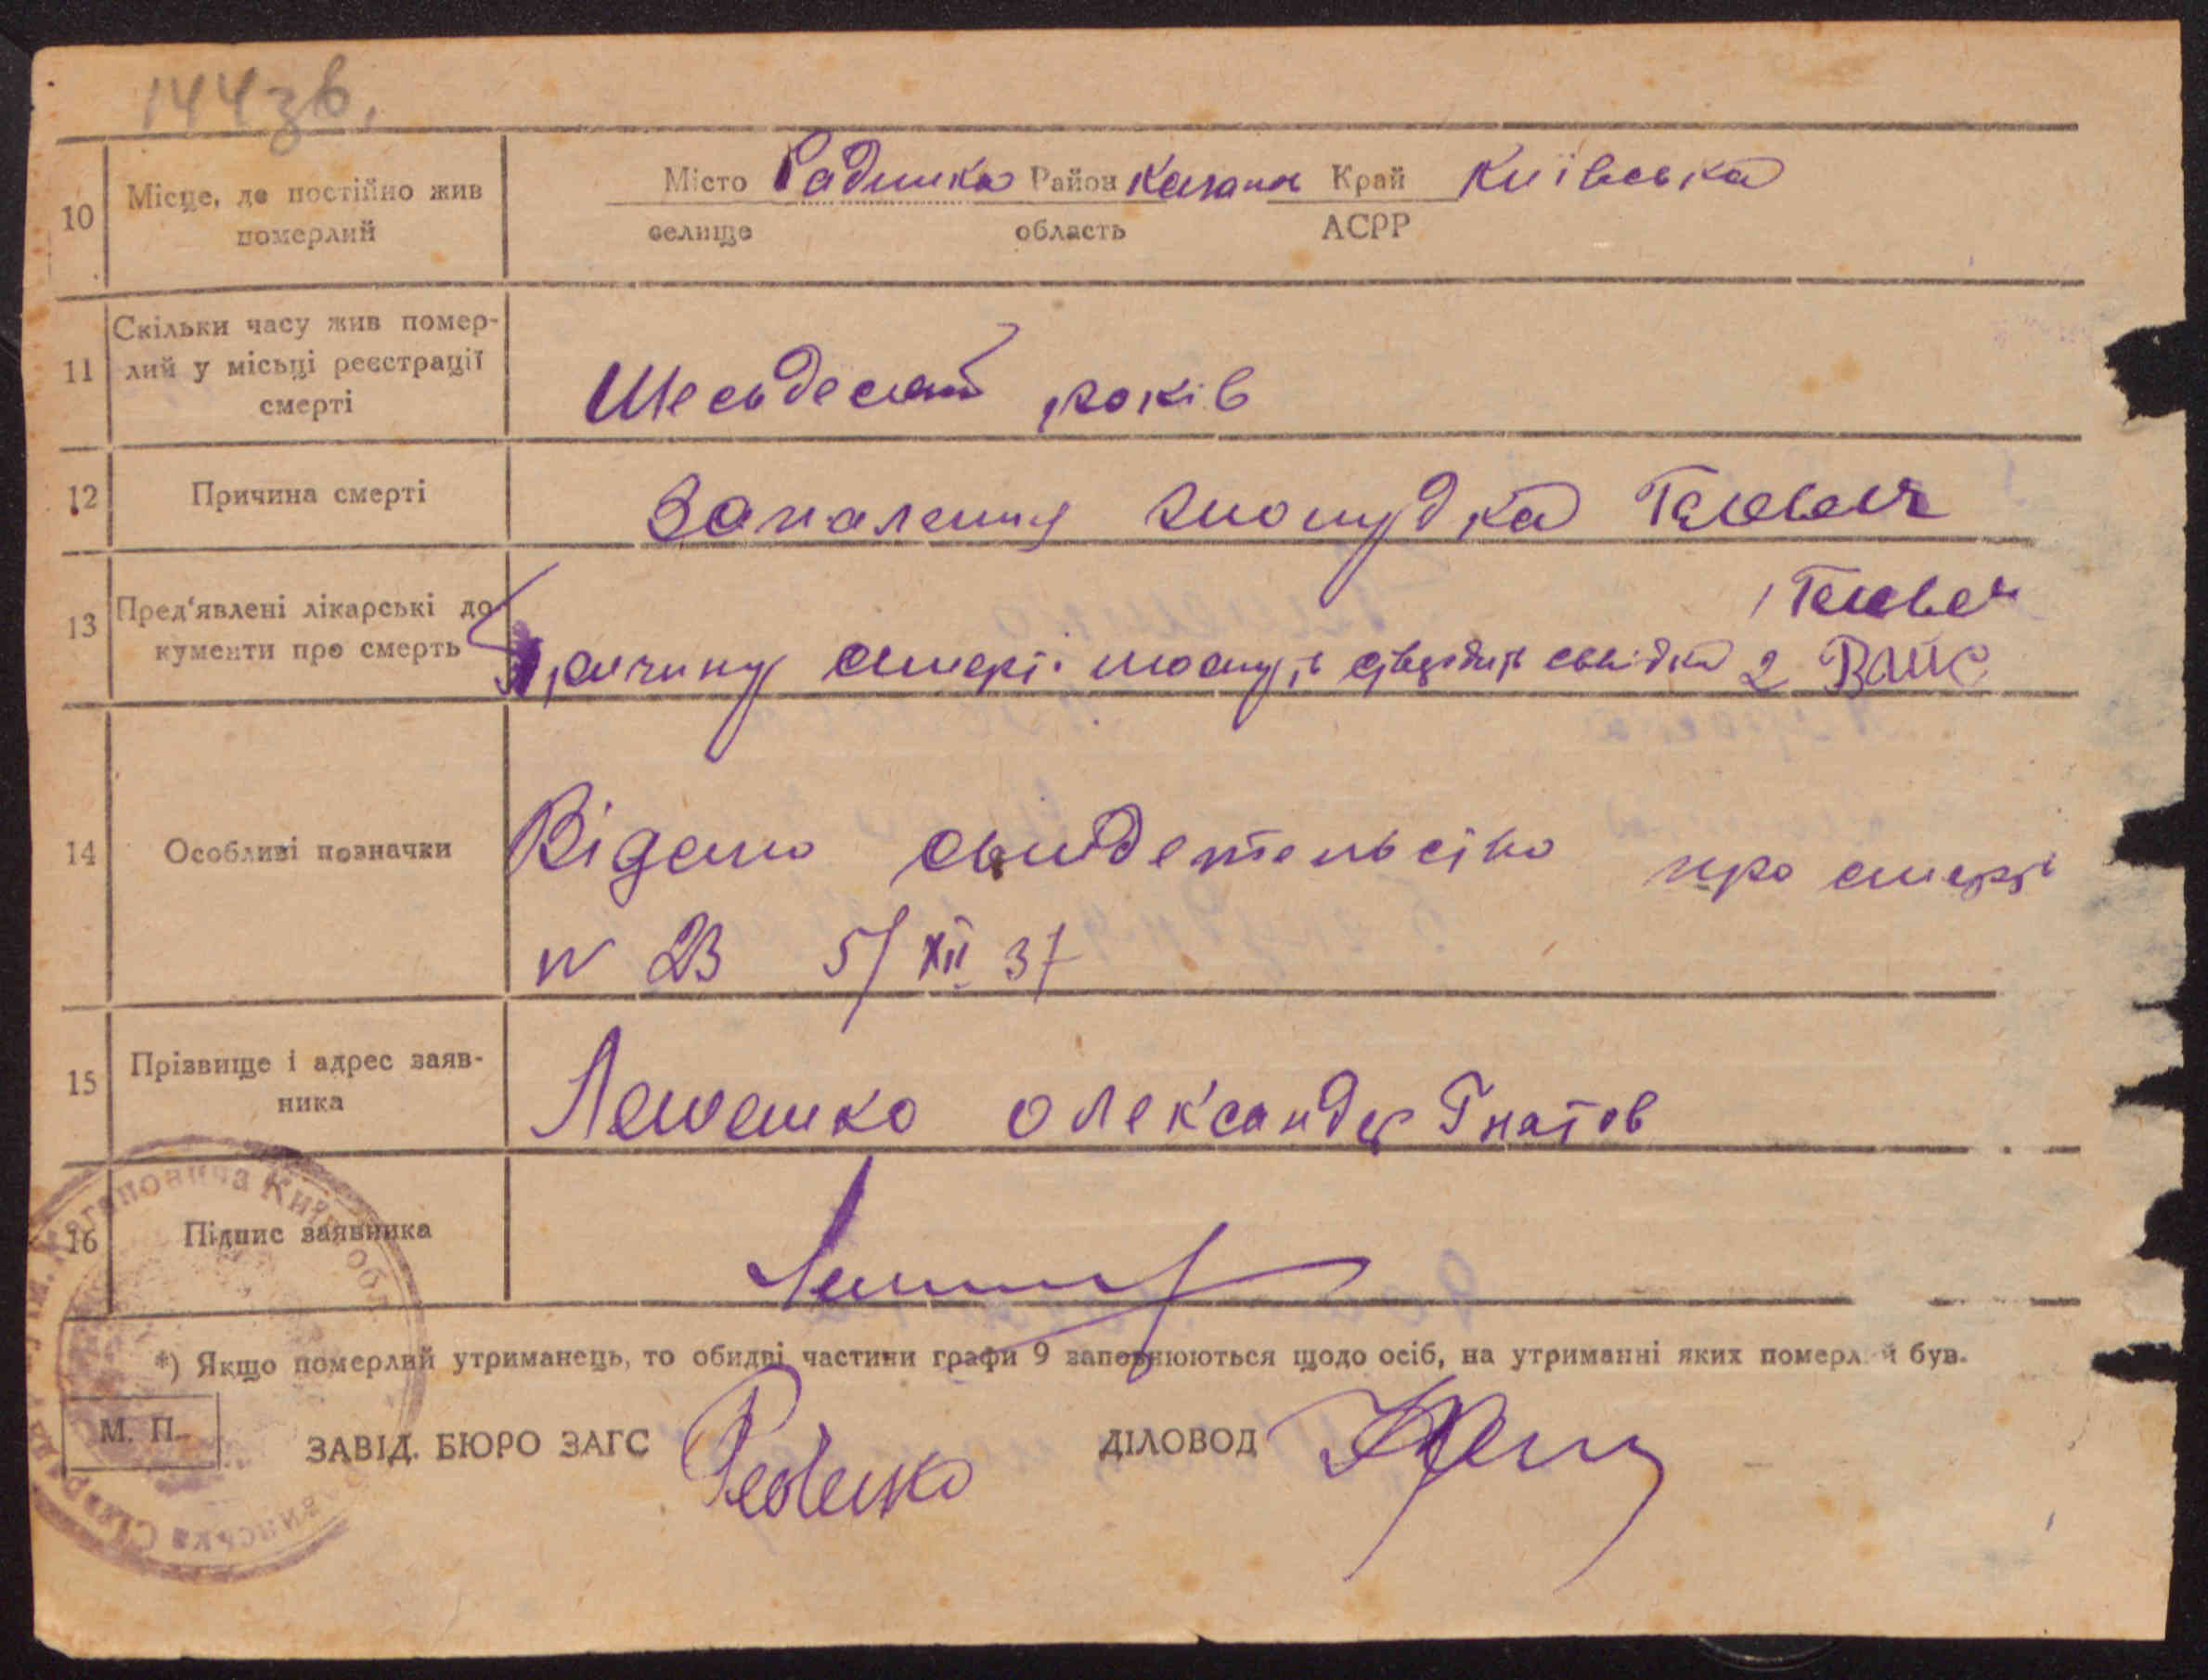 144зв.
10 Місце, де постійно жив померлий
Місто Радинка Район Каган Край Київська
селище область АСРР
11 Скільки часу жив помер-
лий у місьці реєстрації
смерті
Шесьдесят років
12 Причина смерті
Запалення
13 Пред'явлені лікарські до
кументи про смерть
причину смерті можуть свідки 2
14 Особливі позначки
Відано свидетельство про смерть
N 23 5/XII 37
15 Прізвище і адрес заяв-
ника
Олександр Гнатов
16 Підпис заявника
*) Якщо померлий утриманець, то обидві частини графи 9 заповнюються щодо осіб, на утриманні яких померлий був.
М. П. ЗАВІД. БЮРО ЗАГС ДІЛОВОД
Кагановича Київ обл.